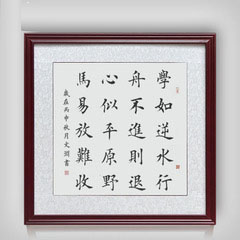 學如逆水行
舟不進則退
心似平原野
馬易放難收
歲在丙申秋月文澗書